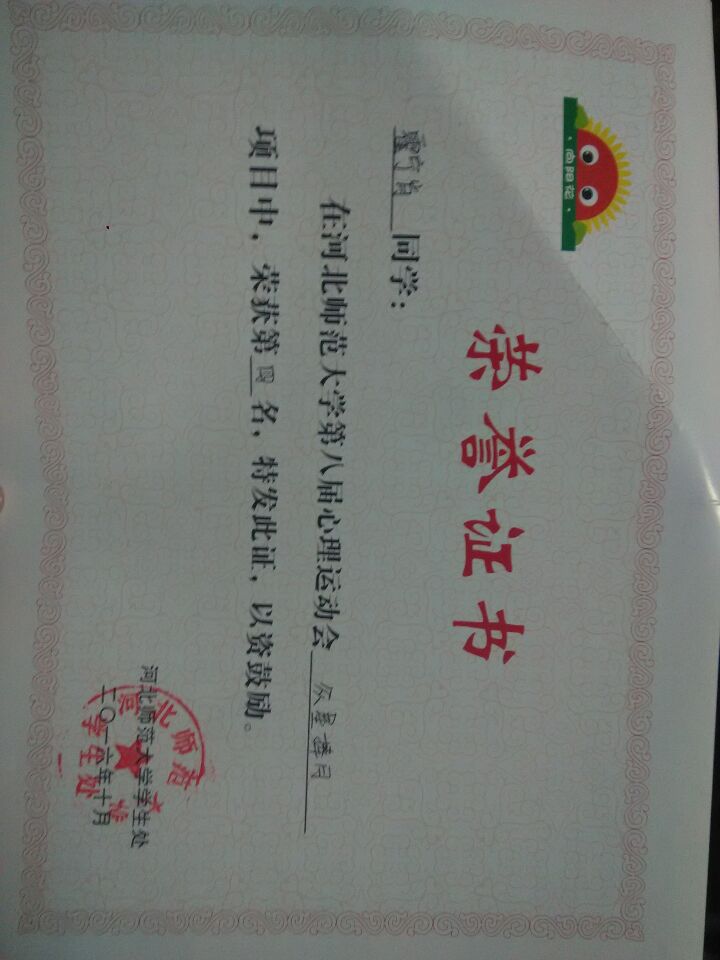 ·向阳花·
荣誉证书
同学：
在河北师范大学第八届心理运动会众星捧月
项目中，荣获第四名，特发此证，以资鼓励。
河北师范大学学生处
二〇一六年十月
学生处